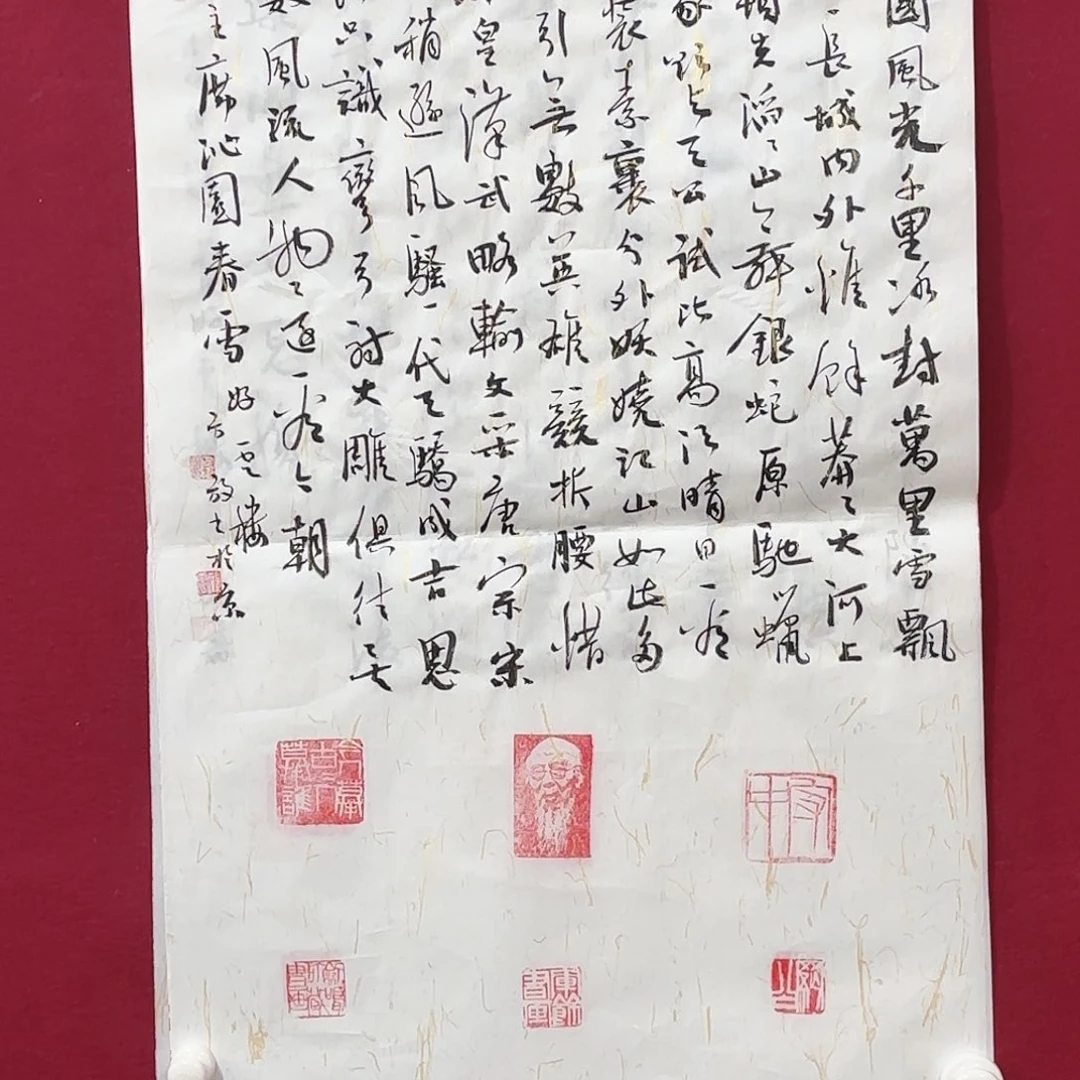 國風光千里冰封萬里雪飄
長城內外惟餘莽々大河上
頓失滔々山舞銀蛇原馳蠟
象欲與天公試比高須晴日看
裝素裹分外妖嬈江山如此多
引無數英雄競折腰惜
皇漢武略輸文采唐宗宋
稍遜風騷一代天驕成吉思
只識彎弓射大雕俱往矣
數風流人物々還看今朝
主席沁園春雪
好雲樓
於京